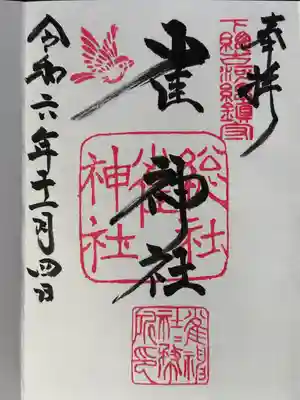 奉拝
下総古河総鎮守
雀神社
総社
雀
神社
雀神
社社務
所印
令和六年十一月四日